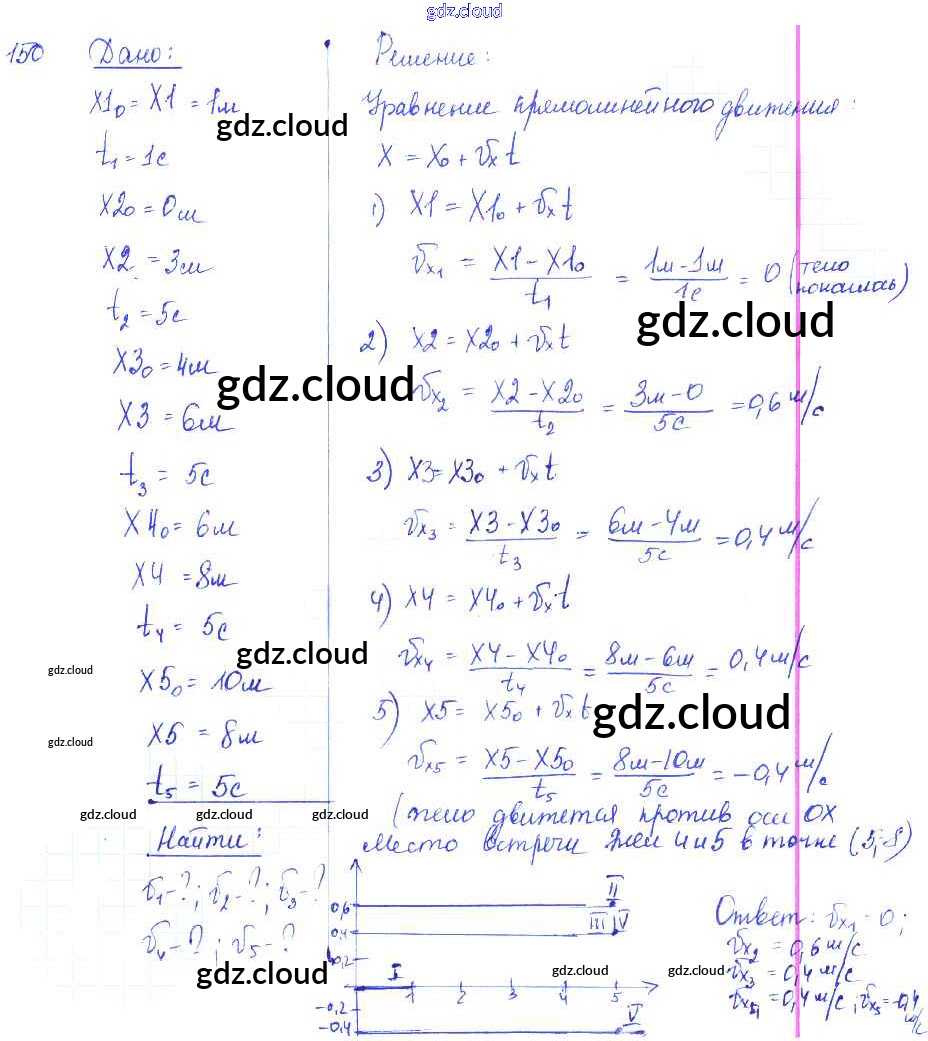 gdz.cloud
150 Дано:
X1₀ = X1 = 1м
gdz.cloud
t₁ = 1с
X2₀ = 0м
X2 = 3м
t₂ = 5с
X3₀ = 4м
gdz.cloud
X3 = 6м
t₃ = 5с
X4₀ = 6м
X4 = 8м
t₄ = 5с
gdz.cloud
gdz.cloud
X5₀ = 10м
X5 = 8м
gdz.cloud
t₅ = 5с
gdz.cloud gdz.cloud gdz.cloud
Найти:
v₁ - ?; v₂ - ?; v₃ - ?
v₄ - ?; v₅ - ?
gdz.cloud
Решение:
Уравнение прямолинейного движения:
X = X₀ + vₓt
1) X1 = X1₀ + vₓt
vₓ₁ = (X1 - X1₀)/t₁ = (1м - 1м)/1с = 0 (тело покоилась)
gdz.cloud
2) X2 = X2₀ + vₓt
vₓ₂ = (X2 - X2₀)/t₂ = (3м - 0)/5с = 0,6 м/с
3) X3 = X3₀ + vₓt
vₓ₃ = (X3 - X3₀)/t₃ = (6м - 4м)/5с = 0,4 м/с
4) X4 = X4₀ + vₓt
vₓ₄ = (X4 - X4₀)/t₄ = (8м - 6м)/5с = 0,4 м/с
5) X5 = X5₀ + vₓt
gdz.cloud
vₓ₅ = (X5 - X5₀)/t₅ = (8м - 10м)/5с = -0,4 м/с
(тело движется против оси OX
место встречи тел 4 и 5 в точке (5; 8)
0,6 II
0,4 III IV
0,2
I
1 2 3 4 5
-0,2
-0,4 V
gdz.cloud gdz.cloud
Ответ: vₓ₁ = 0;
vₓ₂ = 0,6 м/с
vₓ₃ = 0,4 м/с
= 0,4 м/с; vₓ₅ = -0,4 м/с